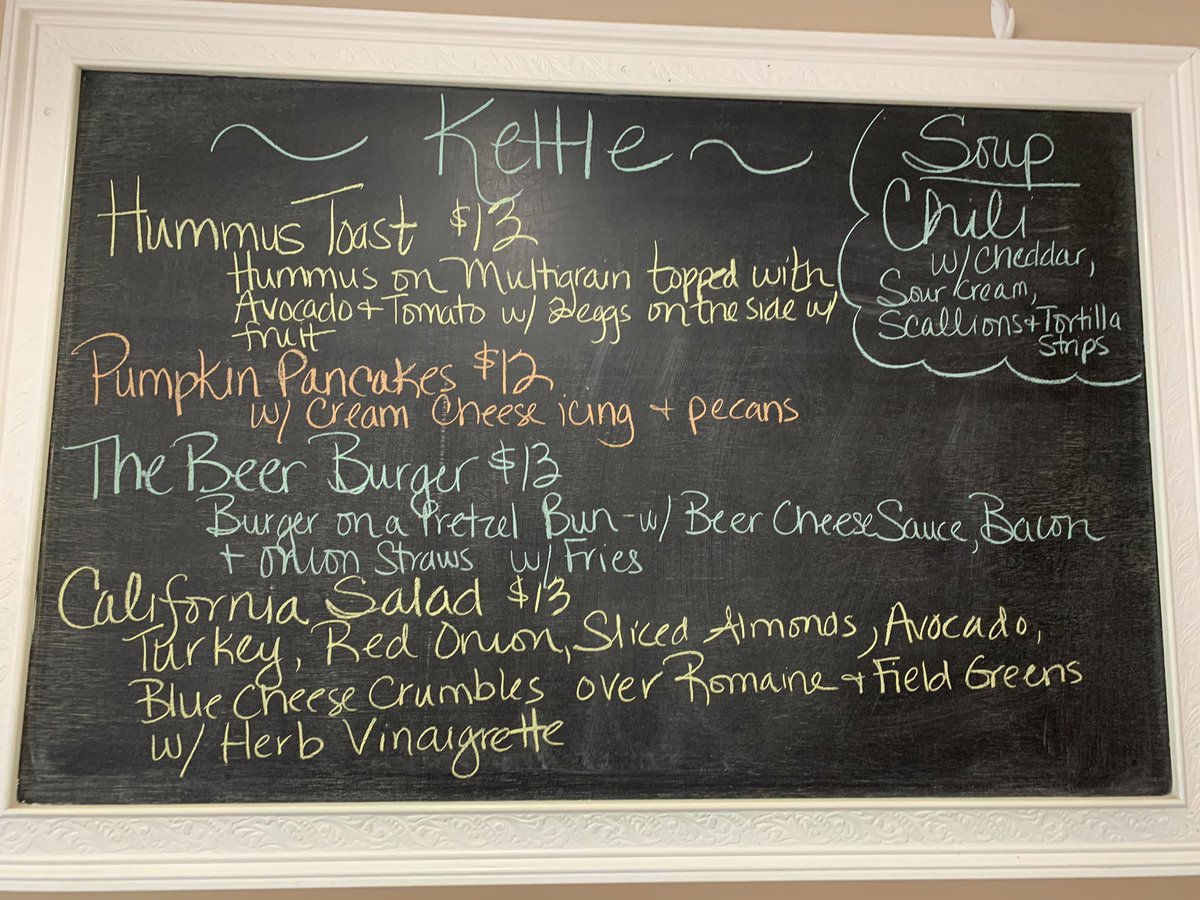 ~ Kettle ~
Hummus Toast $13
Hummus on Multigrain topped with
Avocado + Tomato w/ 2 eggs on the side w/
fruit
Pumpkin Pancakes $12
w/ Cream Cheese icing + pecans
The Beer Burger $13
Burger on a Pretzel Bun - w/ Beer Cheese Sauce, Bacon
+ onion Straws w/ Fries
California Salad $13
Turkey, Red Onion, Sliced Almonds, Avocado,
Blue Cheese Crumbles over Romaine + Field Greens
w/ Herb Vinaigrette
Soup
Chili
w/ Cheddar,
Sour Cream,
Scallions + Tortilla
Strips